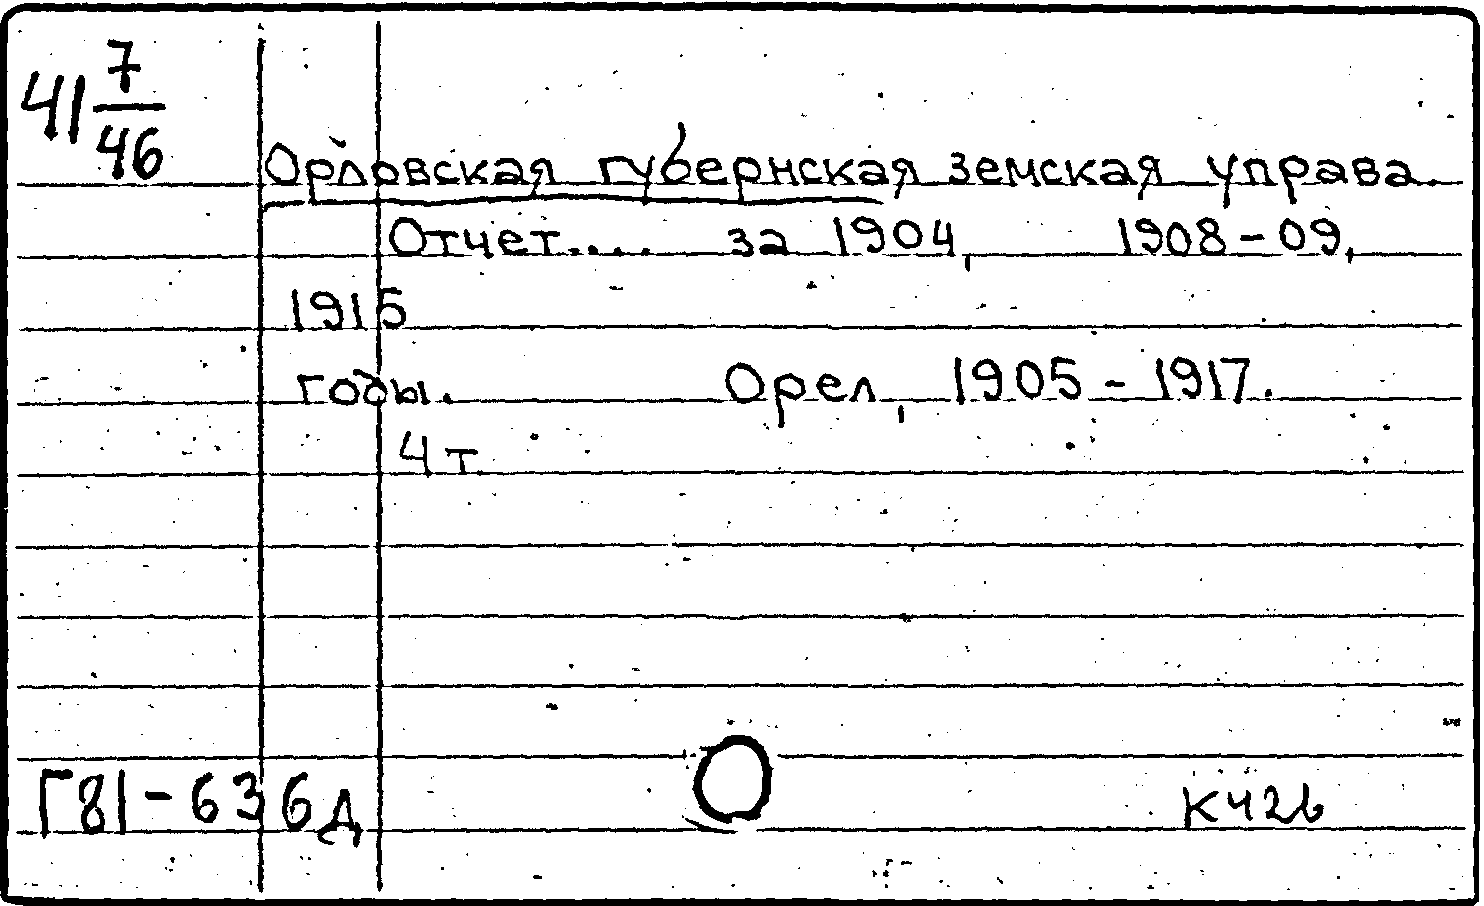 41 7/46
Орловская губернская земская управа.
Отчет.... за 1904, 1908-09,
1915
годы. Орел, 1905-1917.
4 т.
Г81-636д
К426